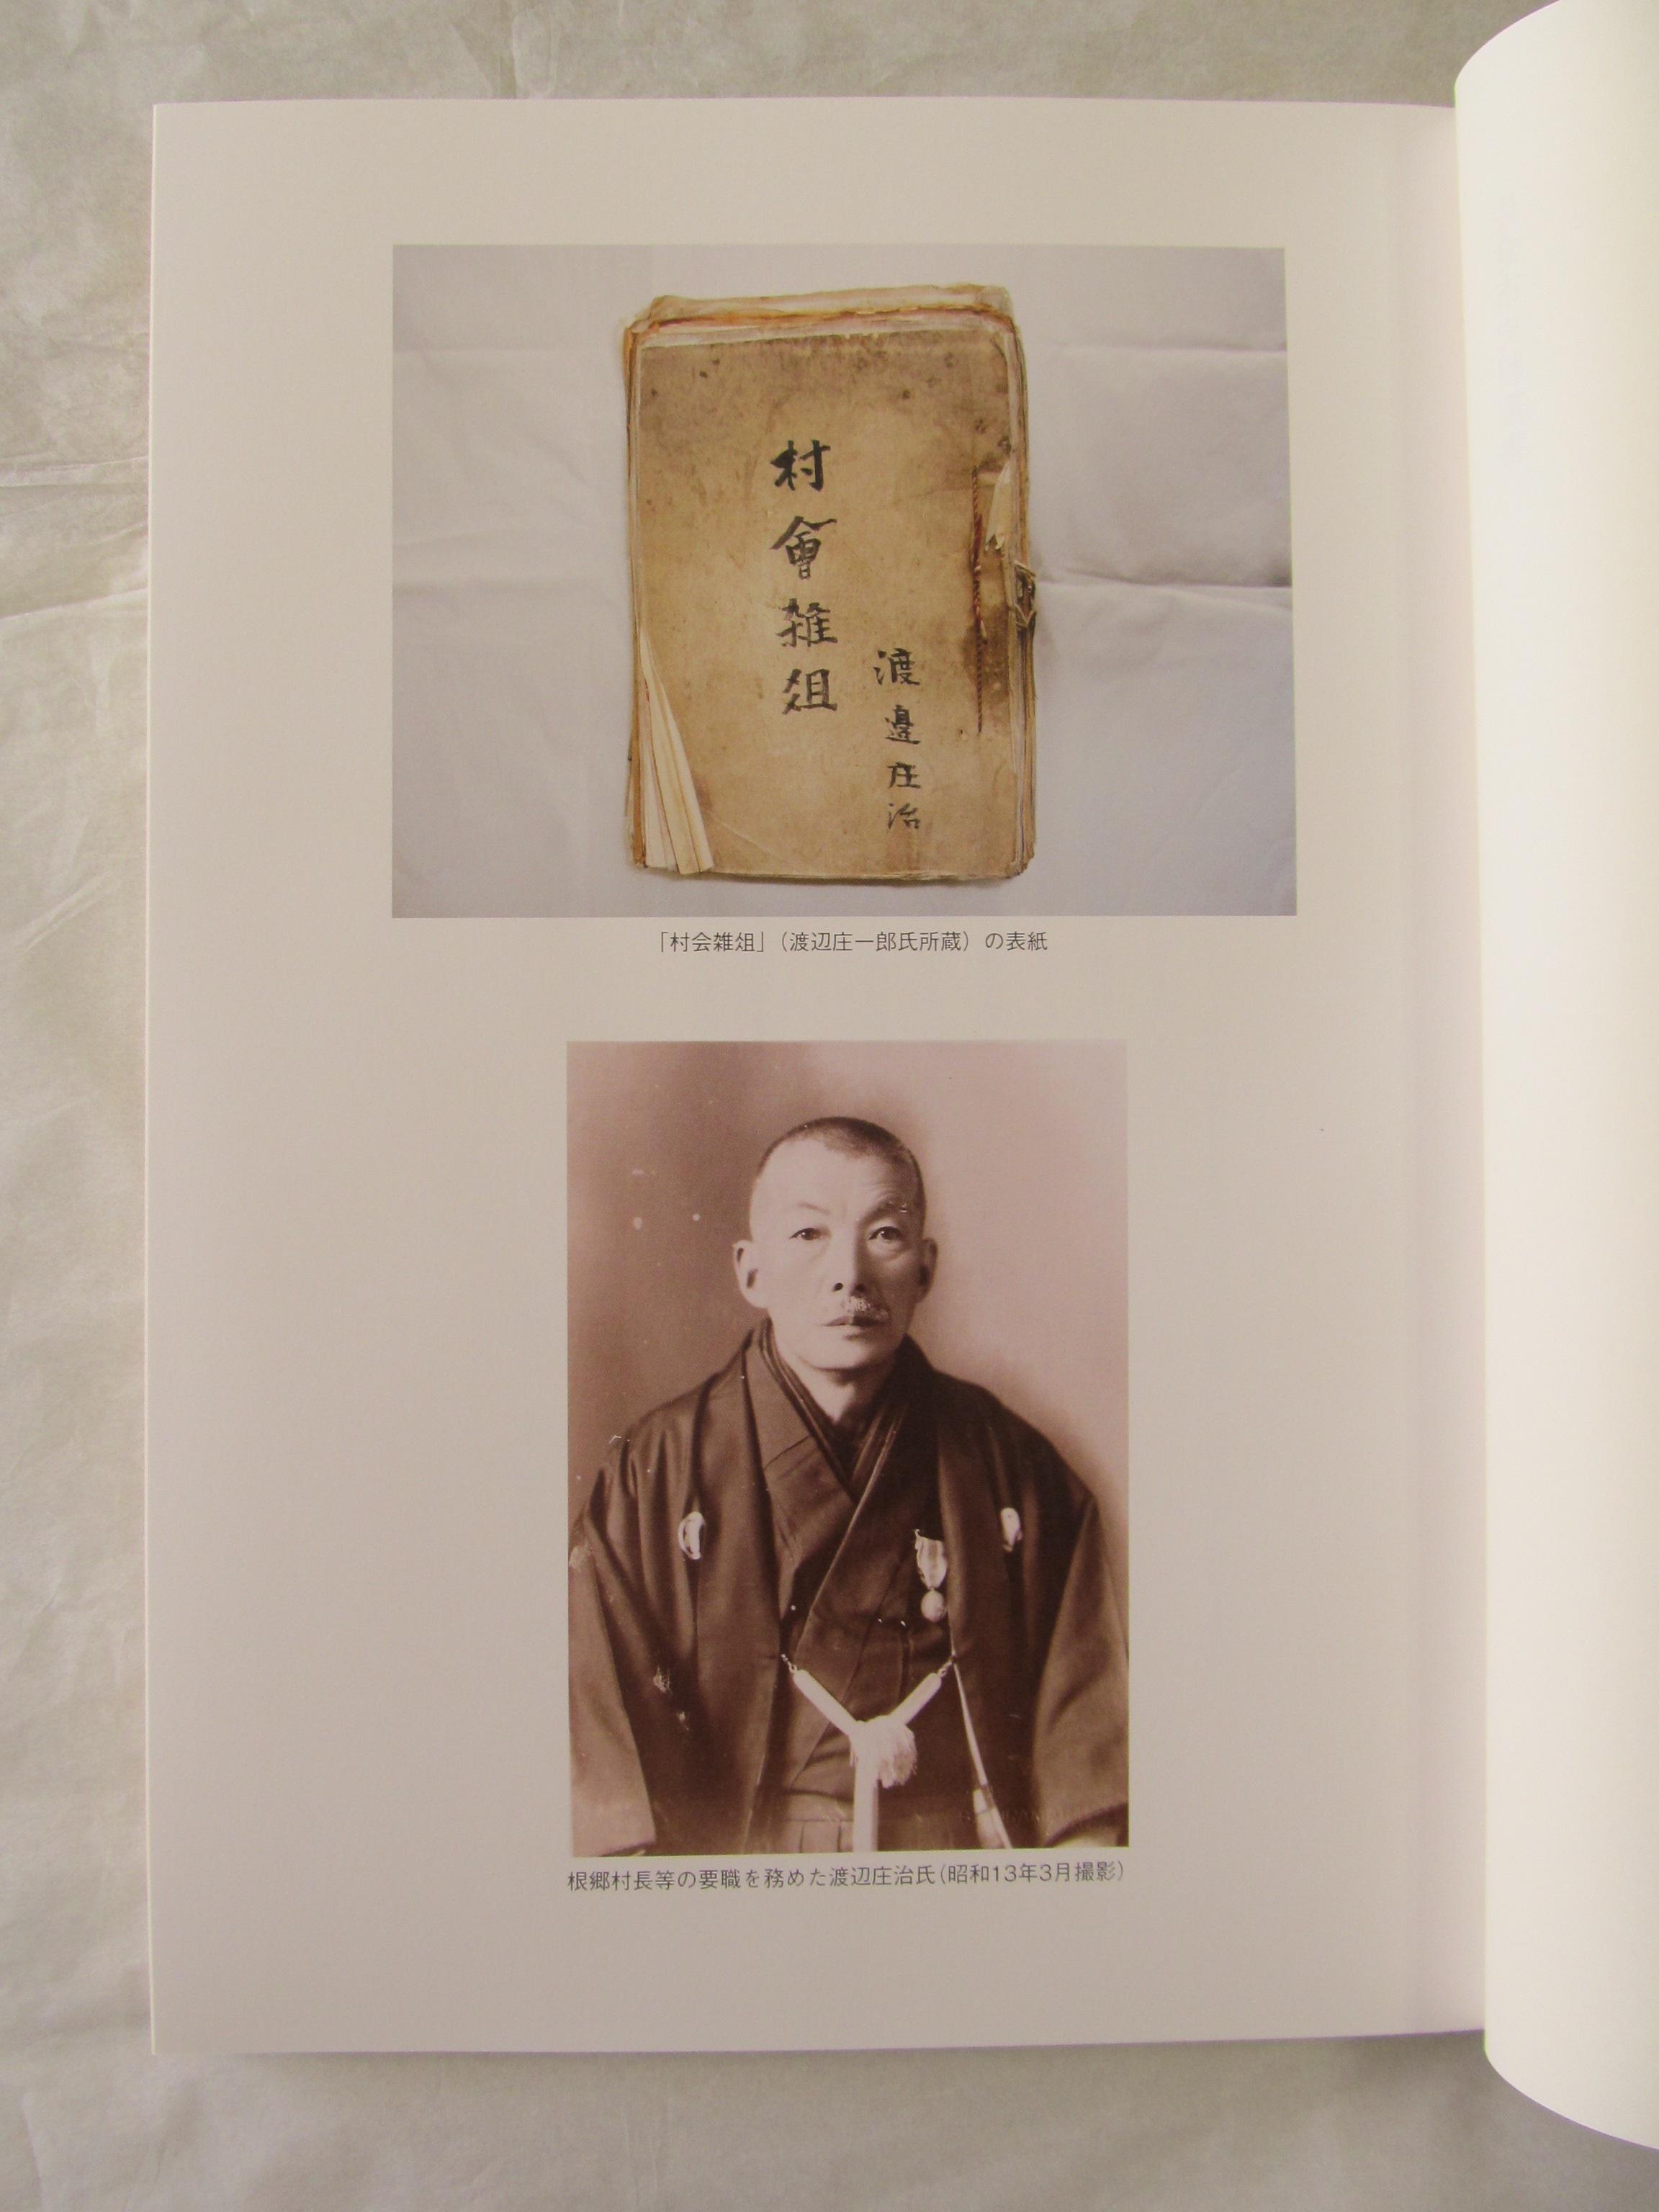 村會雑俎
渡邉庄治
「村会雑俎」（渡辺庄一郎氏所蔵）の表紙
根郷村長等の要職を務めた渡辺庄治氏（昭和13年3月撮影）